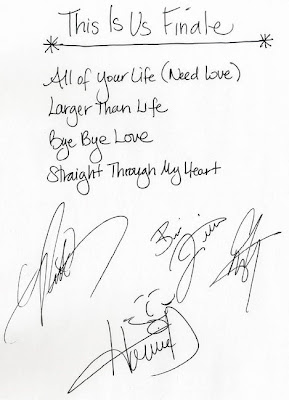 This Is Us Finale
All of Your Life (Need Love)
Larger Than Life
Bye Bye Love
Straight Through My Heart